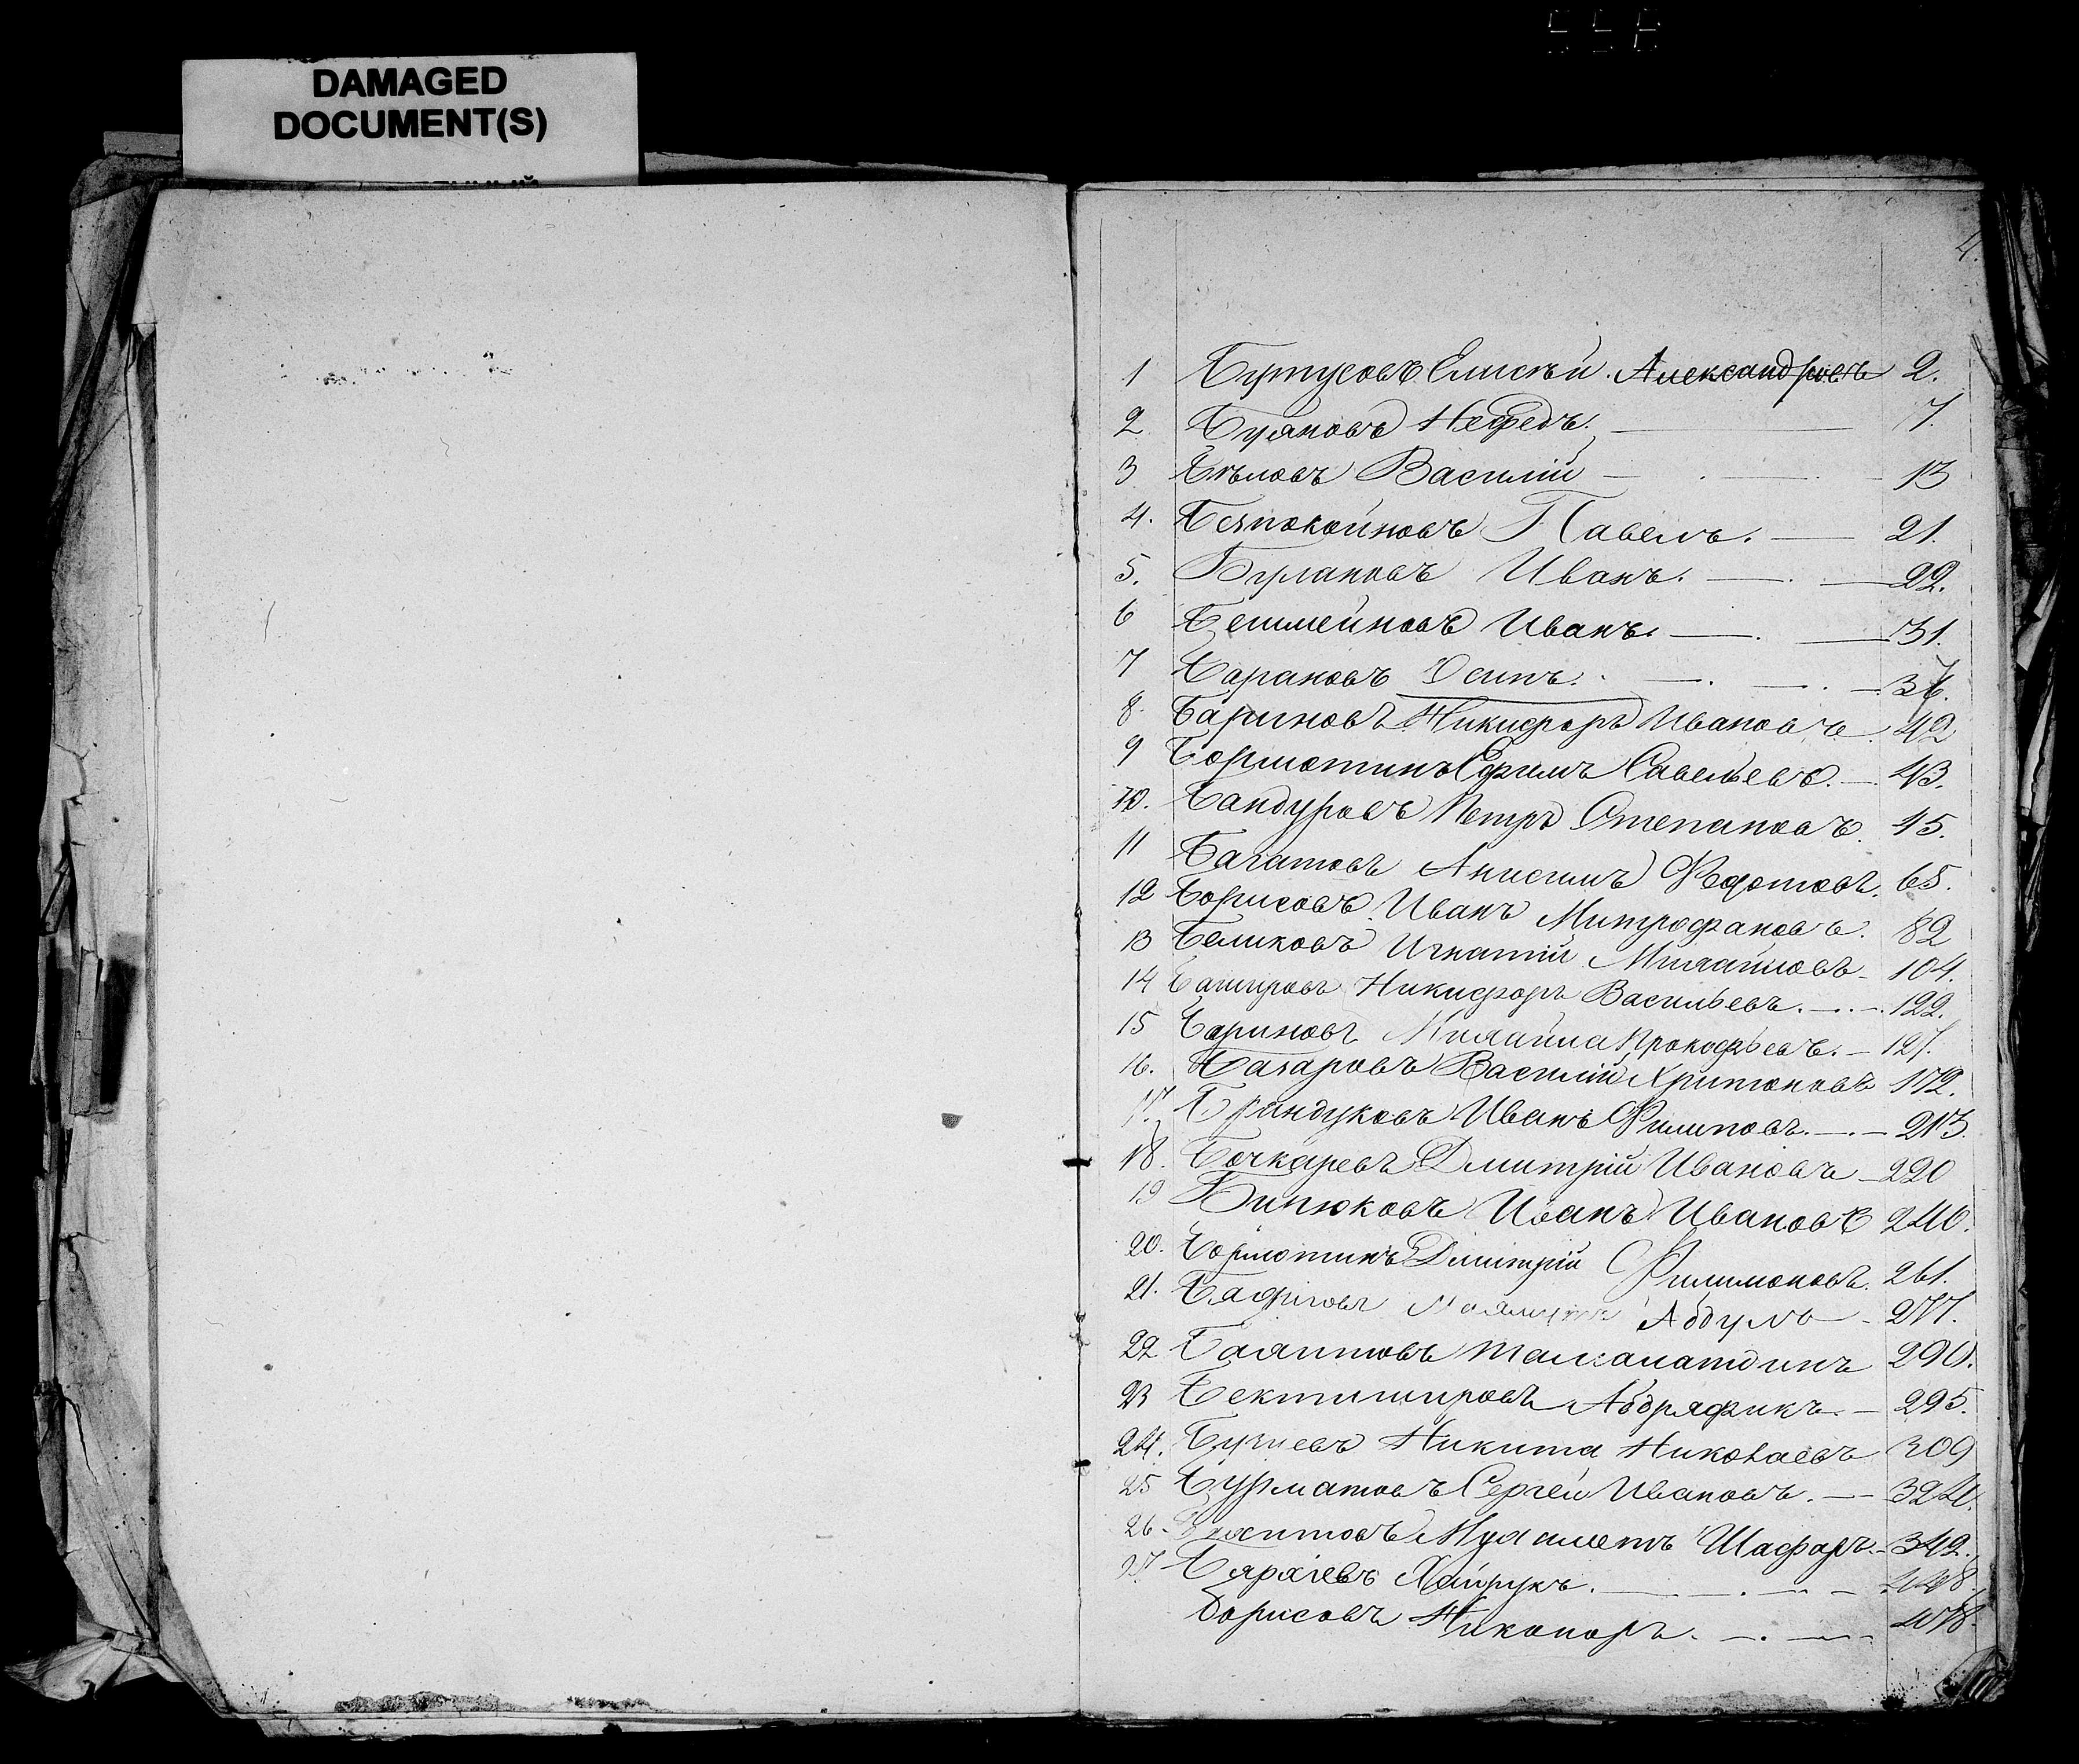 DAMAGED
DOCUMENT(S)
4.
1 Буртусовъ Елисѣй Александровъ 2.
2 Буяновъ Нефедъ. 7.
3 Бѣловъ Василiй 13
4. Безпокойновъ Павелъ. 21.
5. Булановъ Иванъ. 22.
6 Иванъ. 31.
7 Барановъ Осипъ.
8. Бариновъ Никифоръ Ивановъ 42
9 Бормотинъ Ефимъ Савельевъ. 43.
10. Бандуровъ Петръ Степановъ 45.
11 Багатовъ Анисимъ Федотовъ. 65.
12 Борисовъ Иванъ Митрофановъ. 82
13 Беликовъ Игнатiй Михайловъ 104.
14 Башировъ Никифоръ Васильевъ. 122.
15 Бариновъ Михайла Прокофьевъ. 127.
16. Базаровъ Василiй Хритоновъ 172.
17. Брындуковъ Иванъ Филиповъ. 213.
18. Бочкаревъ Дмитрiй Ивановъ 220
19 Бирюковъ Иванъ Ивановъ 240.
20. Бормотинъ Дмитрiй Филимоновъ. 261.
21. Абдулъ 277.
22 Баяитовъ 290.
23 Бектимировъ Абдряфикъ. 295.
24. Никита Николаевъ 309
25 Бурматовъ Сергей Ивановъ. 324.
26. Мухаметъ Шафаръ. 342.
27
Борисовъ Никоноръ. 478.